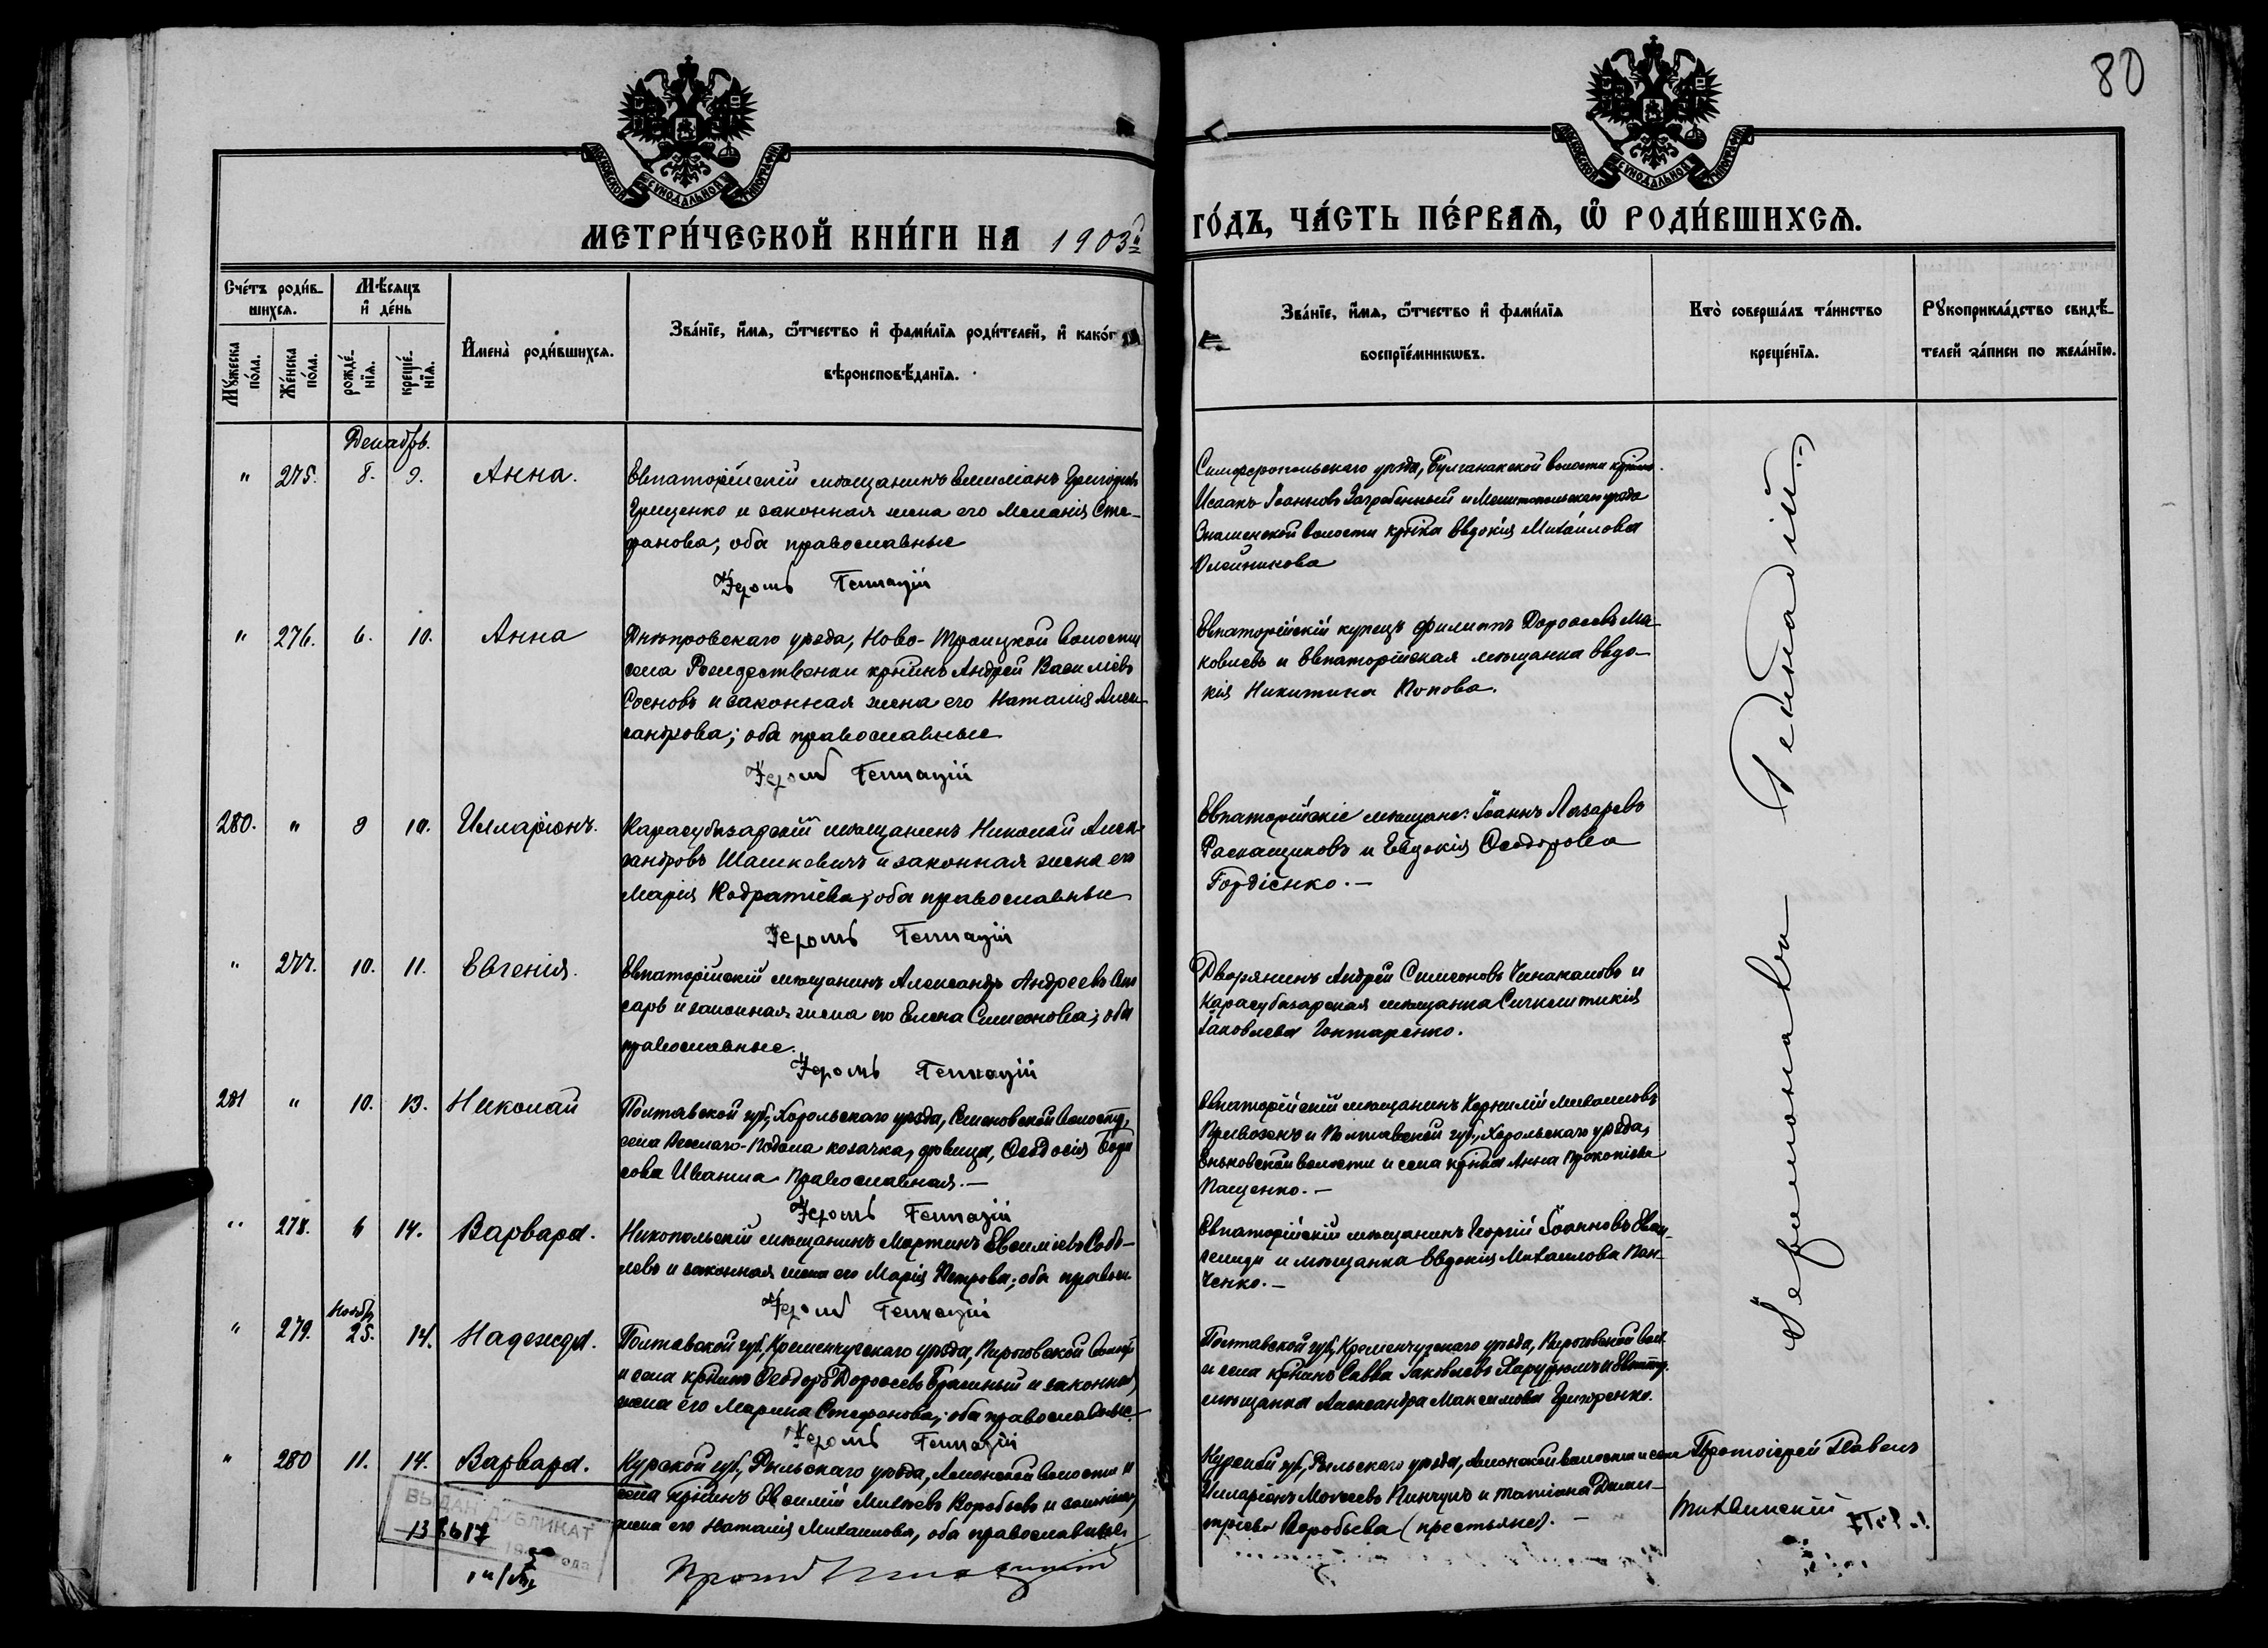 80
МОСКОВСКОЙ СѴНОДАЛЬНОЙ ТИПОГРАФІИ
МОСКОВСКОЙ СѴНОДАЛЬНОЙ ТИПОГРАФІИ
МЕТРИ́ЧЕСКОЙ КНИ́ГИ НА 1903й ГО́ДЪ, ЧА́СТЬ ПЕ́РВАЯ, Ѽ РОДИ́ВШИХСЯ.
Сче́тъ роди́вшихся.
Мѣ́сяцъ и҆ де́нь
Мꙋ́жеска по́ла.
Же́нска по́ла.
рожде́нїя.
креще́нїя.
И҆мена̀ роди́вшихся.
Зва́нїе, и҆́мя, ѻ҆́тчество и҆ фами́лїя роди́телей, и҆ како́г
вѣроисповѣ́данїя.
Зва́нїе, и҆́мя, ѻ҆́тчество и҆ фами́лїя
воспрїе́мникѡвъ.
Кто̀ соверша́лъ та́инство
креще́нїя.
Рꙋкоприкла́дство свидѣ́-
телей за́писи по жела́нїю.
Декабрь.
" 275. 8. 9. Анна.
Евпаторійскій мѣщанинъ Емиліанъ Григорьев
Грищенко и законная жена его Меланія Сте-
фанова; оба православные
Іеромъ Геннадій
Симферопольскаго уѣзда, Булганакской волости крѣнъ
Исаакъ Іоанновъ Загребенный и Мелитопольскаго уѣзда
Знаменской волости крѣнка Евдокія Михайлова
Олейникова
" 276. 6. 10. Анна
Днѣпровскаго уѣзда, Ново-Троицкой волости
села Рождественки крѣнинъ Андрей Василіевъ
Сосновъ и законная жена его Наталія Алек-
сандрова; оба православные
Іеромъ Геннадій
Евпаторійскій купецъ Филиппъ Дороѳеевъ Ма-
ковлевъ и Евпаторійская мѣщанка Евдо-
кія Никитина Попова.
280. " 9 10. Илларіонъ.
Карасубазарскій мѣщанинъ Николай Алек-
сандровъ Шашкевичъ и законная жена его
Марія Кодратіева; оба православные
Іеромъ Геннадій
Евпаторійскіе мѣщане: Іоаннъ Лазаревъ
Раскащиковъ и Евдокія Ѳеодорова
Гордіенко.—
" 277. 10. 11. Евгенія.
Евпаторійскій мѣщанинъ Александръ Андреевъ
и законная жена его Елена Симеонова; оба
православные.
Іеромъ Геннадій
Дворянинъ Андрей Симеоновъ Чинакаловъ и
Карасубазарская мѣщанка Синклитикія
Іаковлева Гонтаренко.
281 " 10. 13. Николай
Полтавской губ., Хорольскаго уѣзда, Семеновской волости,
села Веселаго-Подола козачка, дѣвица, Ѳеодосія
Иванна Православная.—
Іеромъ Геннадій
Евпаторійскій мѣщанинъ Корнилій Михаиловъ
и Полтавской губ., Хорольскаго уѣзда,
Еньковской волости и села крѣнка Анна Прокопіева
Пащенко.—
" 278. 6 14. Варвара.
Никопольскій мѣщанинъ Мартинъ Евѳиміевъ Собо-
левъ и законная жена его Марія Петрова; оба правосл
Іеромъ Геннадій
Евпаторійскій мѣщанинъ Георгій Іоанновъ
и мѣщанка Евдокія Михаилова Пан-
ченко.—
Ноябр
" 279. 25. 14. Надежда.
Полтавской губ., Кременчугскаго уѣзда, Пироговской волости
и села крѣнинъ Ѳеодоръ Дороѳеевъ и законная
жена его Марина Стефанова; оба православные
Іеромъ Геннадій
Полтавской губ., Кременчугскаго уѣзда, Пироговской вол.
и села крѣнинъ Савва Іаковлевъ и Евпатор.
мѣщанка Александра Максимова Григоренко.
" 280 11. 14. Варвара.
Курской губ., Рыльскаго уѣзда, волости и
села крѣнинъ Евѳимій Михеевъ Воробьевъ и законная
жена его Наталія Михаилова, оба православные
Курской губ., Рыльскаго уѣзда, волости и села
Иларіонъ Моѵсеевъ Пинчукъ и Татіана Дими-
тріева Воробьева (крестьяне).—
Іеромонахъ Геннадій
Протоіерей Павелъ
Тихвинскій
ВЫДАН ДУБЛИКАТ
года